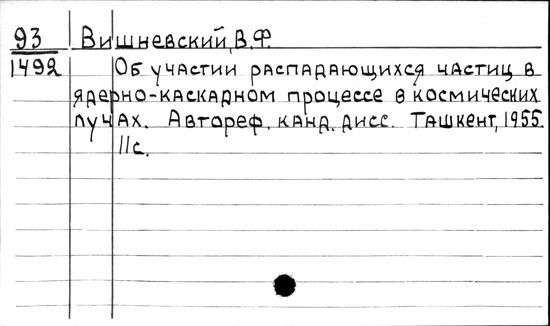 93 Вишневский, В.Ф.
1492 Об участии распадающихся частиц в
ядерно-каскадном процессе в космических
лучах. Автореф. канд. дисс. Ташкент, 1955.
11с.